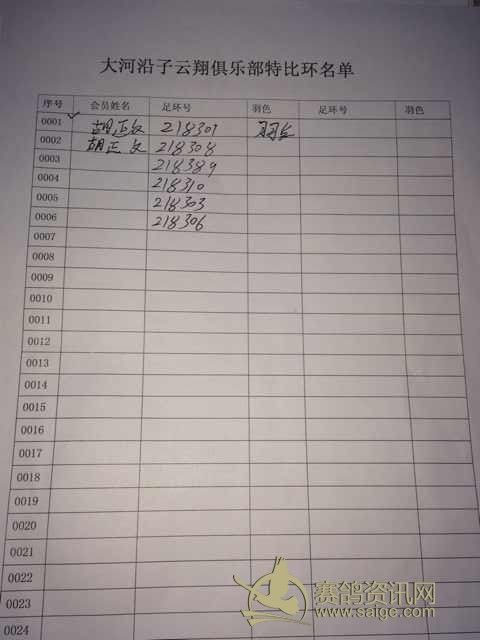 大河沿子云翔俱乐部特比环名单
序号 会员姓名 足环号 羽色 足环号 羽色
0001 胡正文 218301
0002 胡正文 218308
0003 218389
0004 218310
0005 218303
0006 218306
0007
0008
0009
0010
0011
0012
0013
0014
0015
0016
0017
0018
0019
0020
0021
0022
0023
0024
赛鸽资讯网
www.saige.com